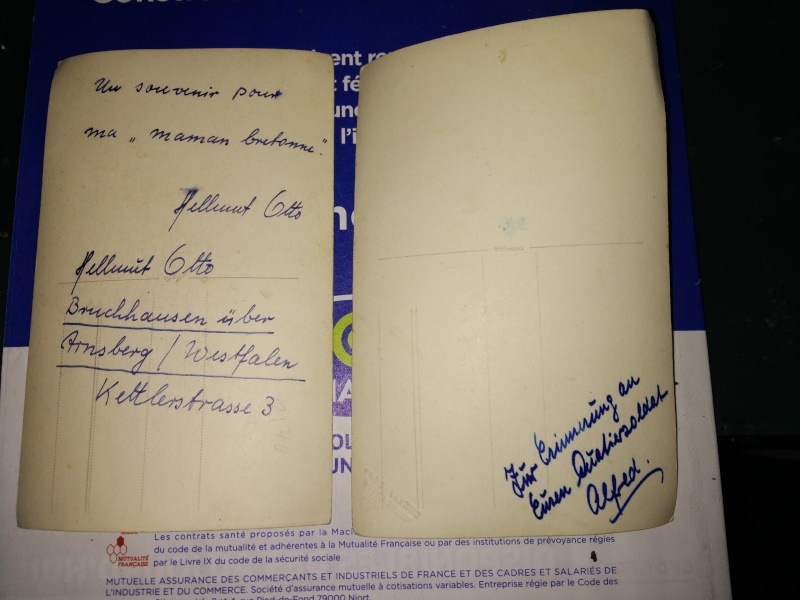 ent re
t fé
une
l'i
Un souvenir pour
ma „maman bretonne".
Hellmut Otto
Hellmut Otto
Bruchhausen über
Arnsberg / Westfalen
Kettlerstrasse 3
Zur Erinnerung an
Euren Quatiersoldat
Alfred.
Les contrats santé proposés par la Maci
du code de la mutualité et adhérentes à la Mutualité Française ou par des institutions de prévoyance régies
par le Livre IX du code de la sécurité sociale
MUTUALITÉ
FRANÇAISE
MUTUELLE ASSURANCE DES COMMERÇANTS ET INDUSTRIELS DE FRANCE ET DES CADRES ET SALARIÉS DE
L'INDUSTRIE ET DU COMMERCE. Société d'assurance mutuelle à cotisations variables. Entreprise régie par le Code des
79000 Niort.